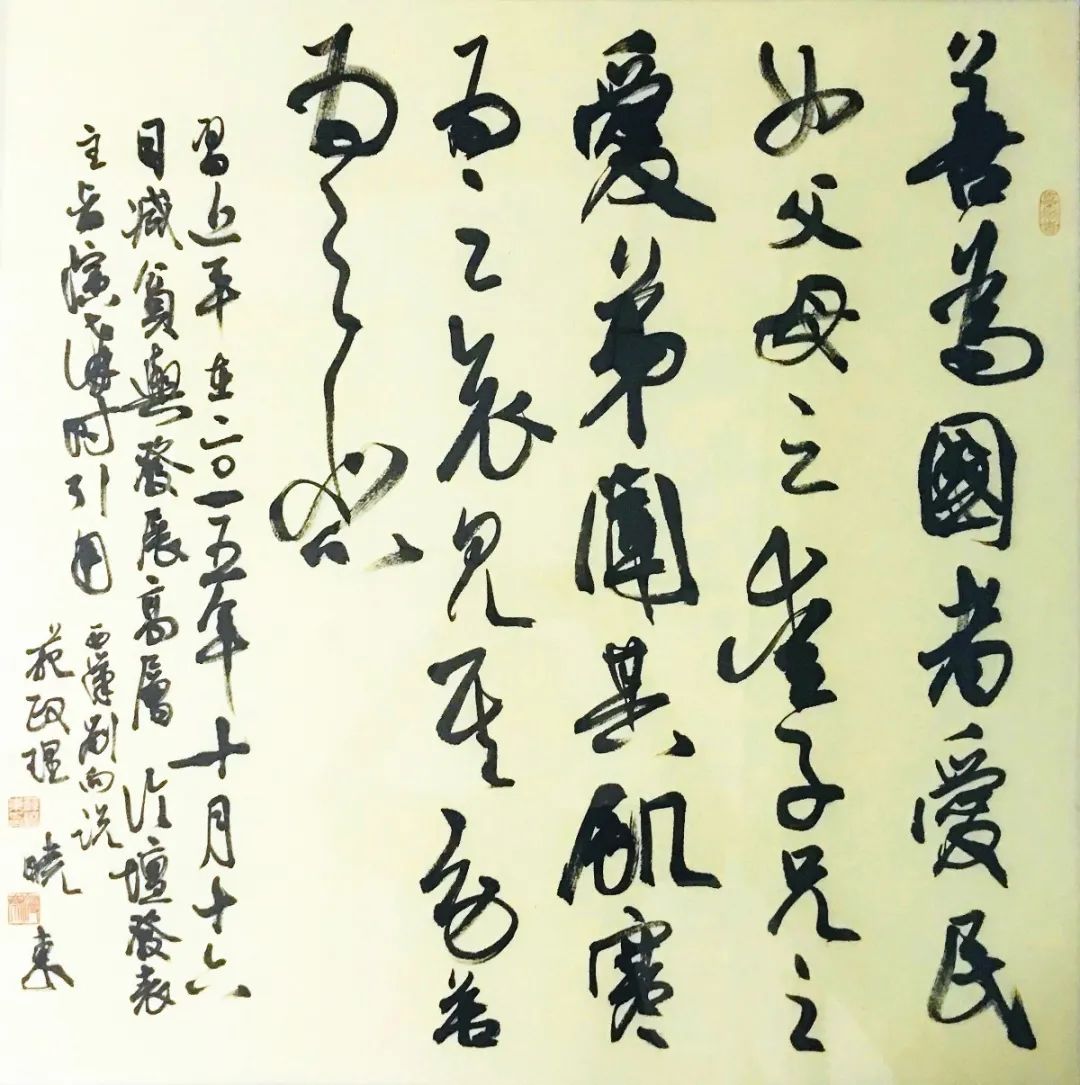 善為國者愛民
如父母之愛子兄之
愛弟聞其飢寒
為之哀見其勞苦
為之悲
習近平在二〇一五年十月十六
日減貧與發展高層論壇發表
主旨演講時引用
西漢劉向説
苑政理
曉東